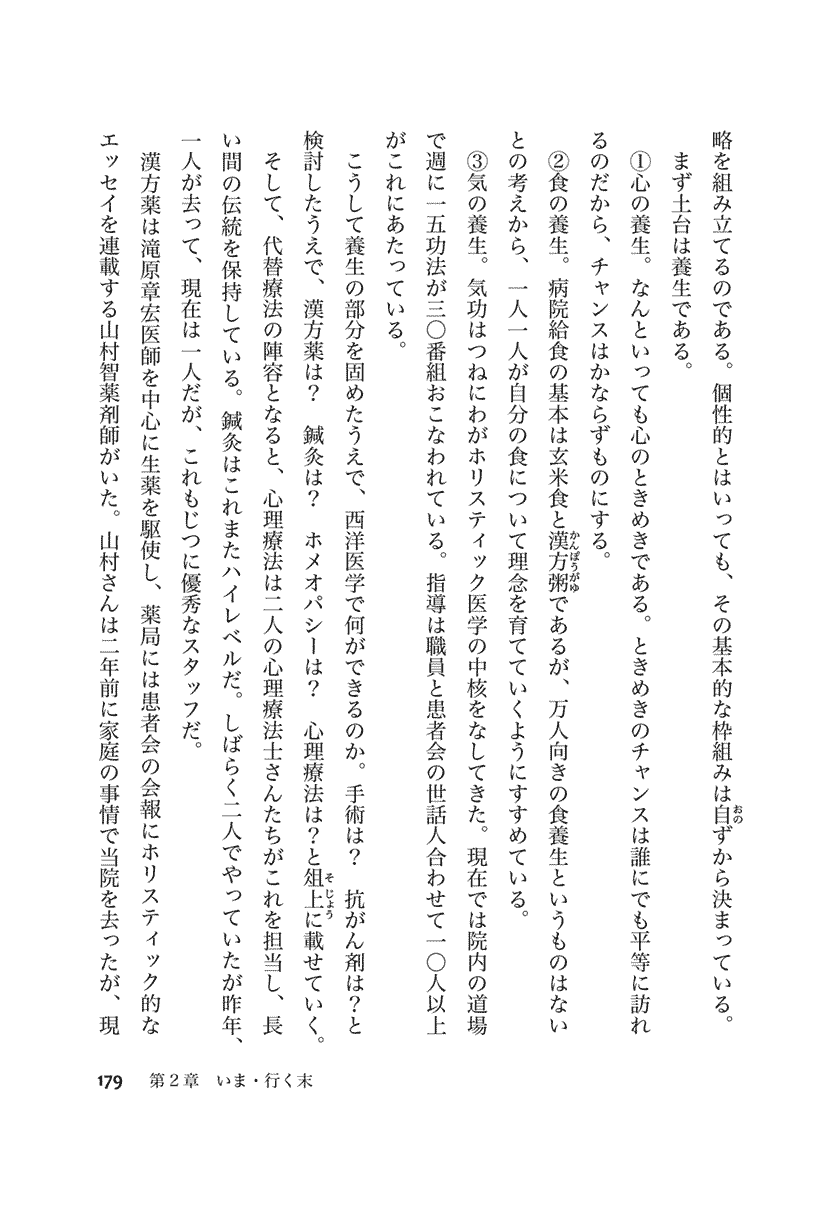 略を組み立てるのである。個性的とはいっても、その基本的な枠組みは自ずから決まっている。
まず土台は養生である。
①心の養生。なんといっても心のときめきである。ときめきのチャンスは誰にでも平等に訪れ
るのだから、チャンスはかならずものにする。
②食の養生。病院給食の基本は玄米食と漢方粥であるが、万人向きの食養生というものはない
との考えから、一人一人が自分の食について理念を育てていくようにすすめている。
③気の養生。気功はつねにわがホリスティック医学の中核をなしてきた。現在では院内の道場
で週に一五功法が三〇番組おこなわれている。指導は職員と患者会の世話人合わせて一〇人以上
がこれにあたっている。
こうして養生の部分を固めたうえで、西洋医学で何ができるのか。手術は？　抗がん剤は？と
検討したうえで、漢方薬は？　鍼灸は？　ホメオパシーは？　心理療法は？と俎上に載せていく。
そして、代替療法の陣容となると、心理療法は二人の心理療法士さんたちがこれを担当し、長
い間の伝統を保持している。鍼灸はこれまたハイレベルだ。しばらく二人でやっていたが昨年、
一人が去って、現在は一人だが、これもじつに優秀なスタッフだ。
漢方薬は滝原章宏医師を中心に生薬を駆使し、薬局には患者会の会報にホリスティック的な
エッセイを連載する山村智薬剤師がいた。山村さんは二年前に家庭の事情で当院を去ったが、現
おの
かんぽうがゆ
そじょう
179　第２章　いま・行く末